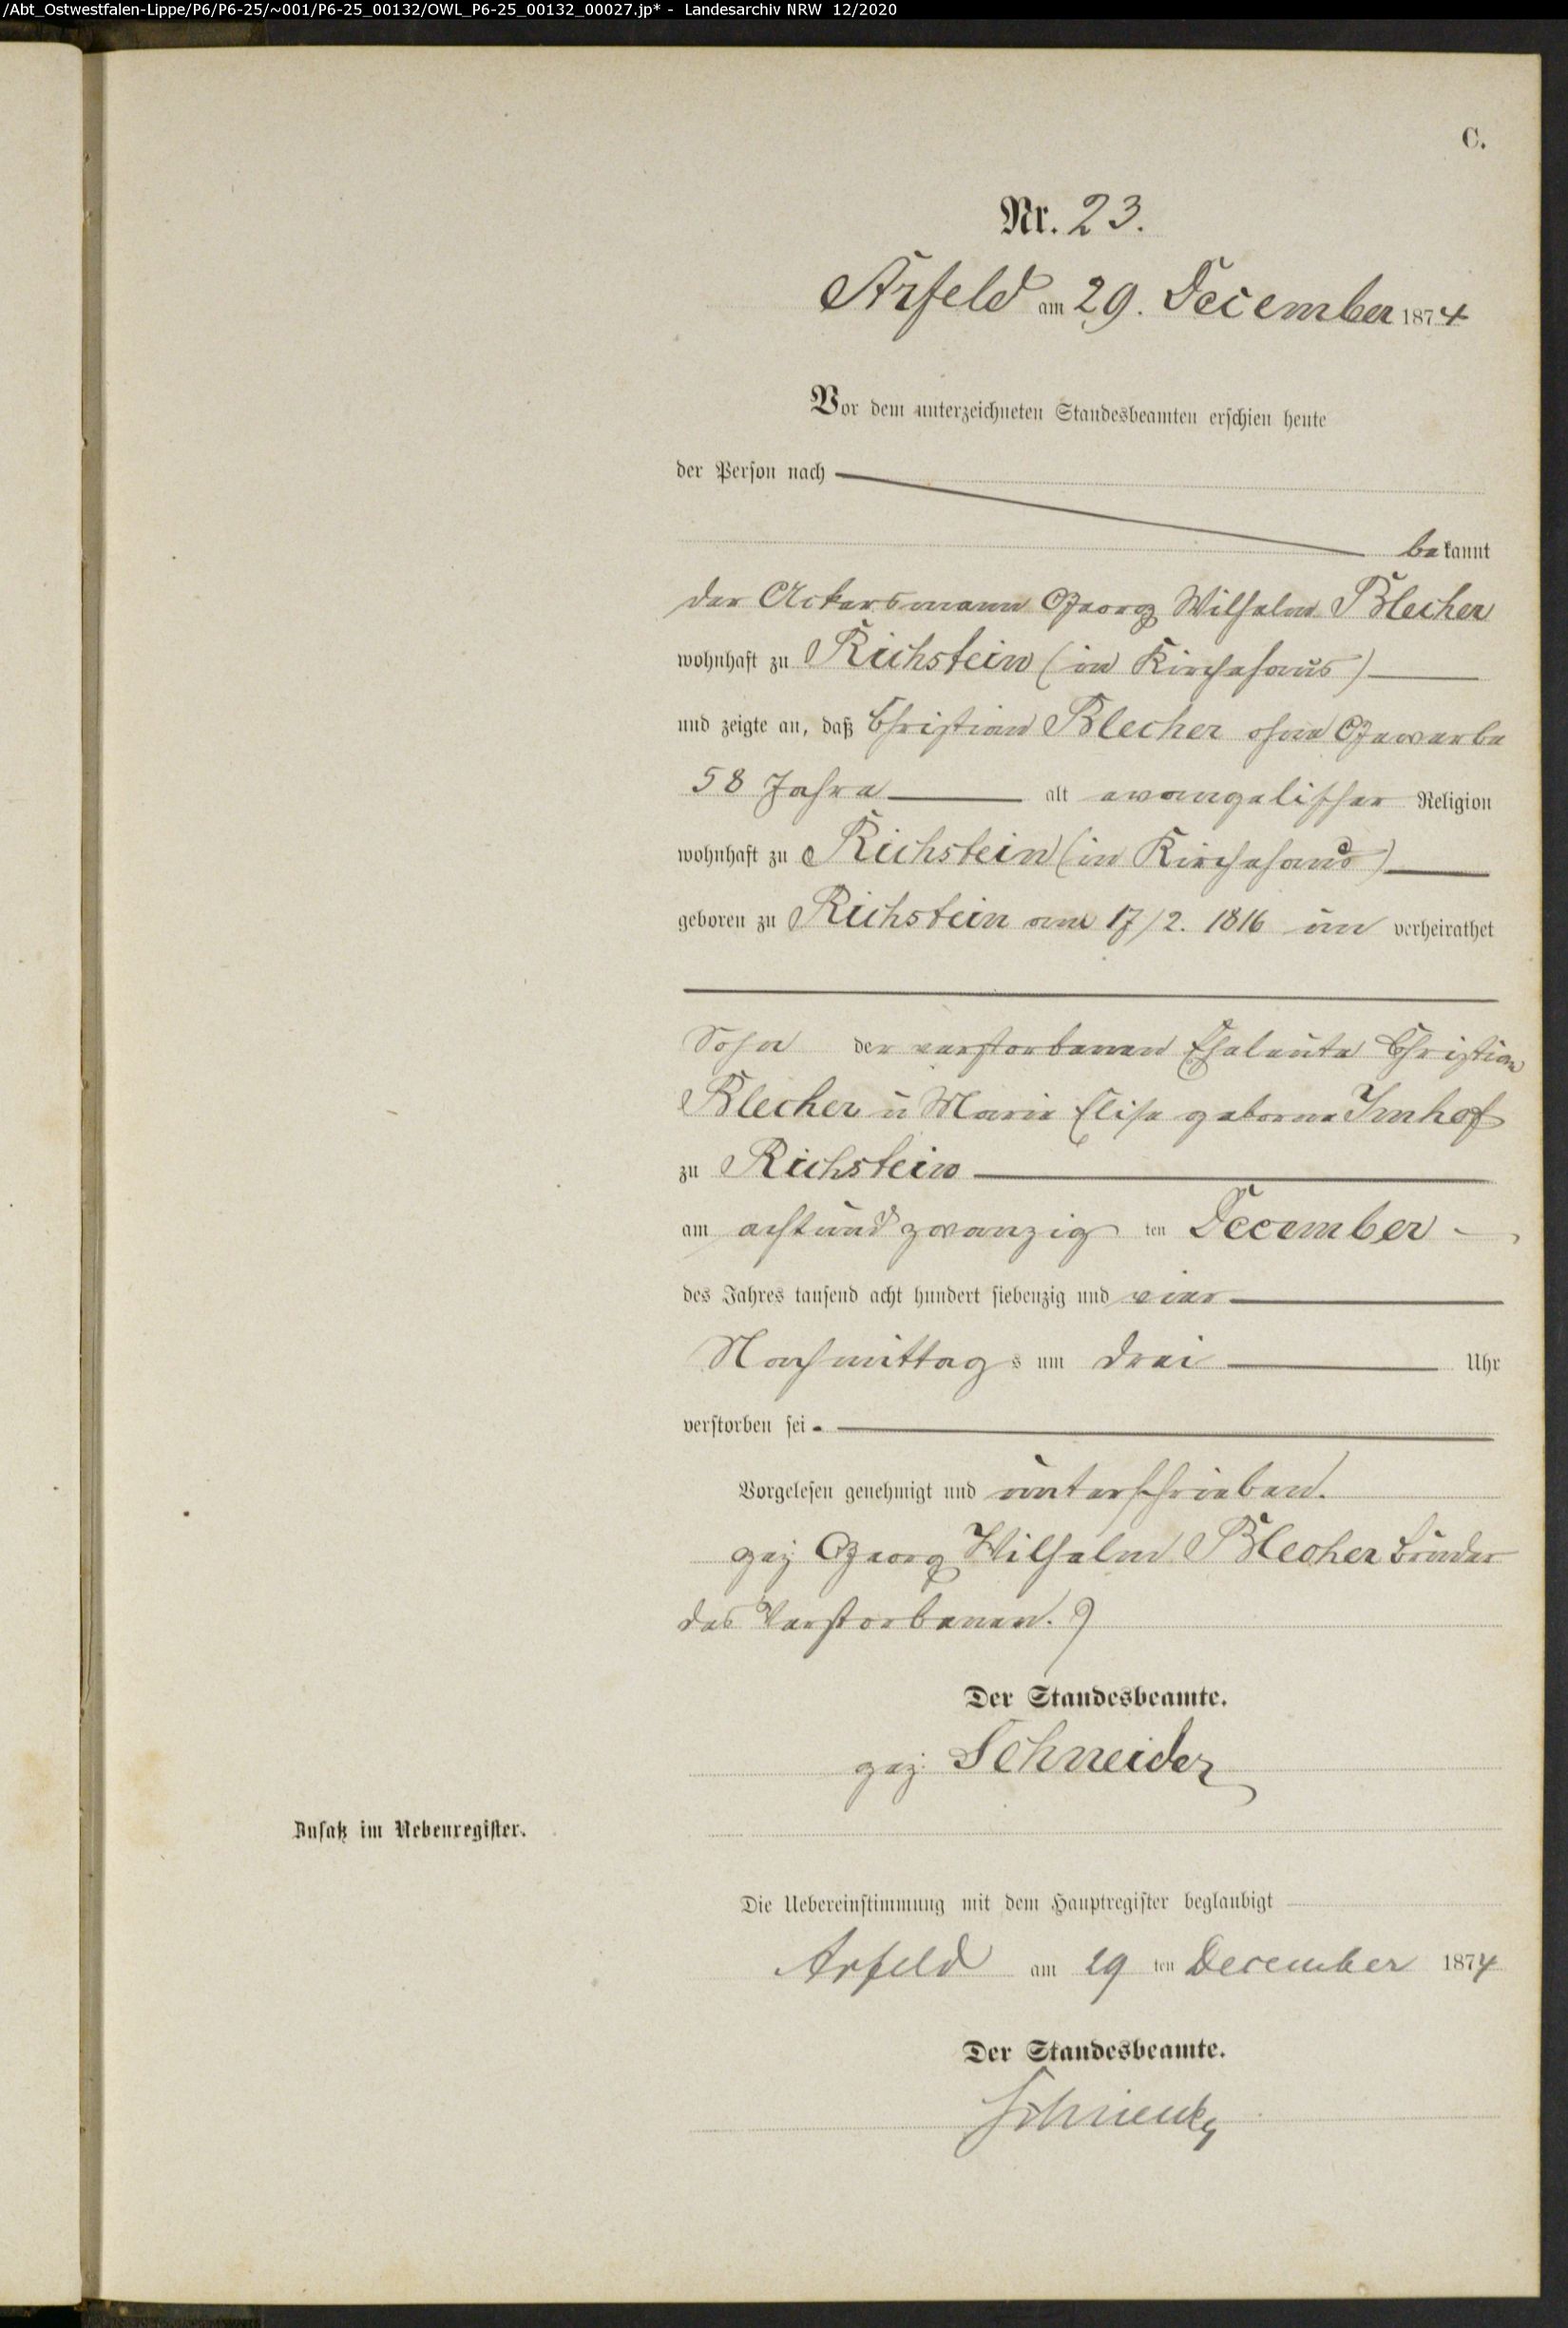 /Abt_Ostwestfalen-Lippe/P6/P6-25/~001/P6-25_00132/OWL_P6-25_00132_00027.jp* - Landesarchiv NRW 12/2020
C.
Nr. 23.
Arfeld am 29. December 1874
Vor dem unterzeichneten Standesbeamten erschien heute
der Person nach
bekannt
der Ackersmann Georg Wilhelm Blecher
wohnhaft zu Richstein (in Kirchehaus)
und zeigte an, daß Christian Blecher ohne Gewerbe
58 Jahre alt evangelischer Religion
wohnhaft zu Richstein (in Kirchehaus)
geboren zu Richstein am 17/2. 1816 un verheirathet
Sohn der verstorbenen Eheleute Christian
Blecher u Marie Elise geborne Imhof
zu Richstein
am achtundzwanzig ten December
des Jahres tausend acht hundert siebenzig und vier
Nachmittags um drei Uhr
verstorben sei.
Vorgelesen genehmigt und unterschrieben.
gez Georg Wilhelm Blecher Bruder
des Verstorbenen.)
Der Standesbeamte.
gez. Schneider
Zusatz im Nebenregister.
Die Uebereinstimmung mit dem Hauptregister beglaubigt
Arfeld am 29 ten December 1874
Der Standesbeamte.
Schneider